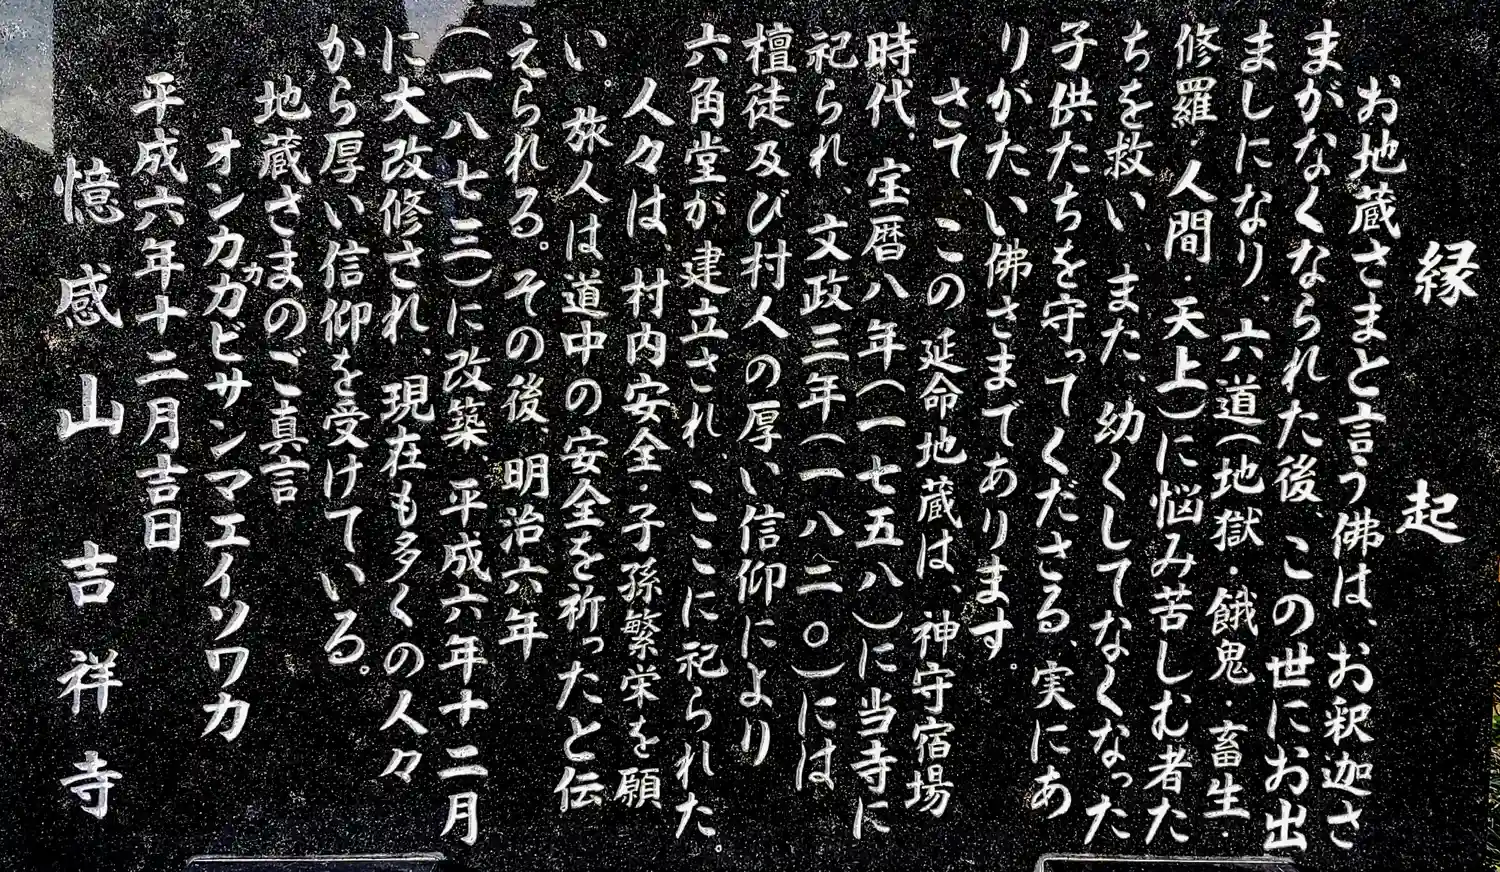 縁起
お地蔵さまと言う佛は、お釈迦さ
まがなくなられた後、この世にお出
ましになり、六道(地獄・餓鬼・畜生・
修羅・人間・天上)に悩み苦しむ者た
ちを救い、また、幼くしてなくなった
子供たちを守ってくださる、実にあ
りがたい佛さまであります。
さて、この延命地蔵は、神守宿場
時代、宝暦八年(一七五八)に当寺に
祀られ、文政三年(一八二〇)には
檀徒及び村人の厚い信仰により
六角堂が建立され、ここに祀られた。
人々は、村内安全・子孫繁栄を願
い。旅人は道中の安全を祈ったと伝
えられる。その後、明治六年
(一八七三)に改築、平成六年十二月
に大改修され、現在も多くの人々
から厚い信仰を受けている。
地蔵さまのご真言
オンカカカビサンマエイソワカ
平成六年十二月吉日
憶感山 吉祥寺